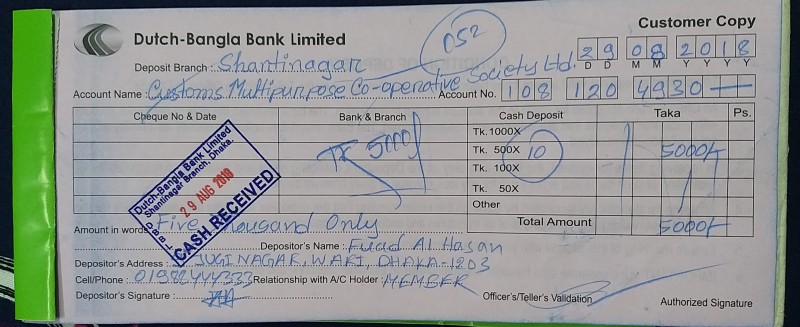 Customer Copy
Dutch-Bangla Bank Limited
052
29 08 2018
D D M M Y Y Y Y
Deposit Branch : Shantinagar
Account Name : Customs Multipurpose Co-operative Society Ltd. Account No. 108 120 4930
Cheque No & Date Bank & Branch Cash Deposit Taka Ps.
Tk. 1000X
Tk 5000/ Tk. 500X 10 5000/-
Tk. 100X
Tk. 50X
Other
Total Amount 5000/-
Dutch-Bangla Bank Limited
Shantinagar Branch, Dhaka.
29 AUG 2018
DBBL
CASH RECEIVED
Amount in words Five Thousand Only
Depositor's Name : Fuad Al Hasan
Depositor's Address : JUGINAGAR, WARI, DHAKA-1203
Cell/Phone : 01922444333 Relationship with A/C Holder : MEMBER
Depositor's Signature : Officer's/Teller's Validation Authorized Signature